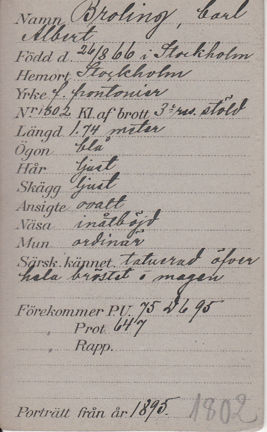 Namn Broling, Carl
Albert
Född d 26/8 66 i Stockholm
Hemort Stockholm
Yrke f. pontonier
Nr 1802 Kl. af brott 3:e res. stöld
Längd 1.74 meter
Ögon blå
Hår ljust
Skägg ljust
Ansigte ovalt
Näsa inåtböjd
Mun ordinär
Särsk. kännet. tatuerad öfver
hela bröstet o magen
Förekommer PU. 75 6 95
" Prot. 647
" Rapp.
Porträtt från år 1895. 1802